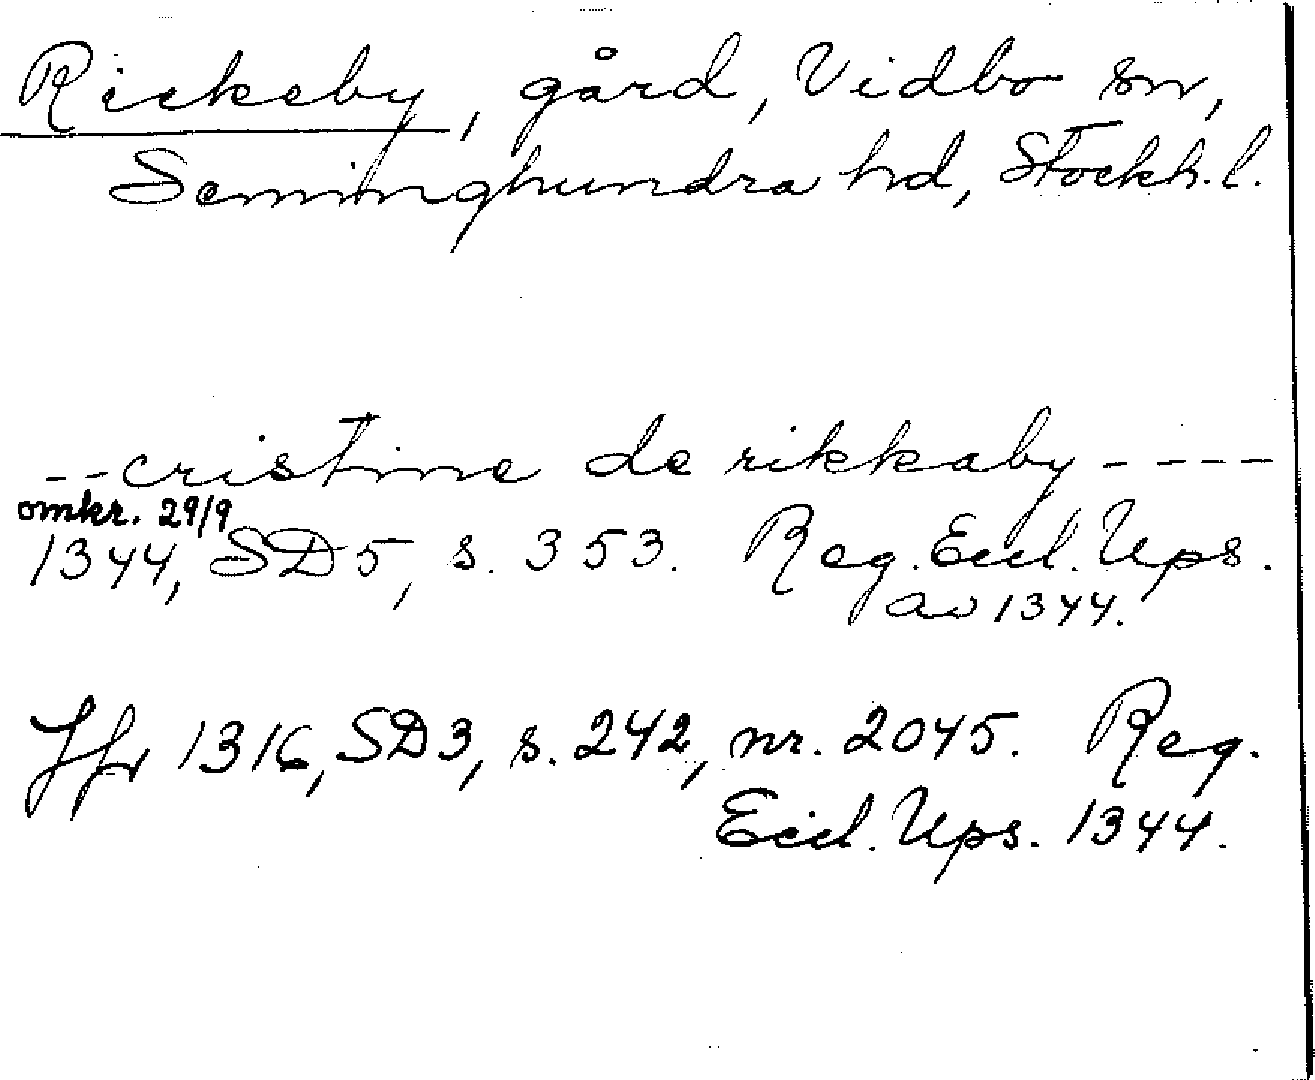 Rickeby, gård, Vidbo sn,
Seminghundra hd, Stockh. l.
--cristine de rikkaby----
omkr. 29/9
1344, SD5, s. 353. Reg. Eccl. Ups.
av 1344.
Jfr 1316, SD3, s. 242, nr. 2045. Reg.
Eccl. Ups. 1344.